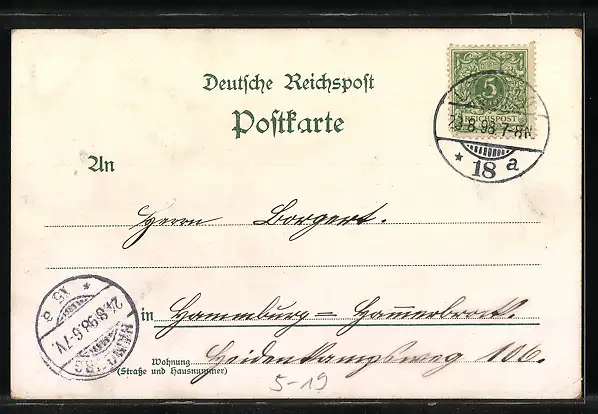 Deutsche Reichspost
Postkarte
5
REICHSPOST
23.8.98.7-8N.
* 18 a
An
Herrn Borgert.
in Hammburg = Hammerbrook.
Wohnung
(Straße und Hausnummer)
Heidenkampsweg 106.
HAMBURG
24.8.98.6-7V.
* a
5-19